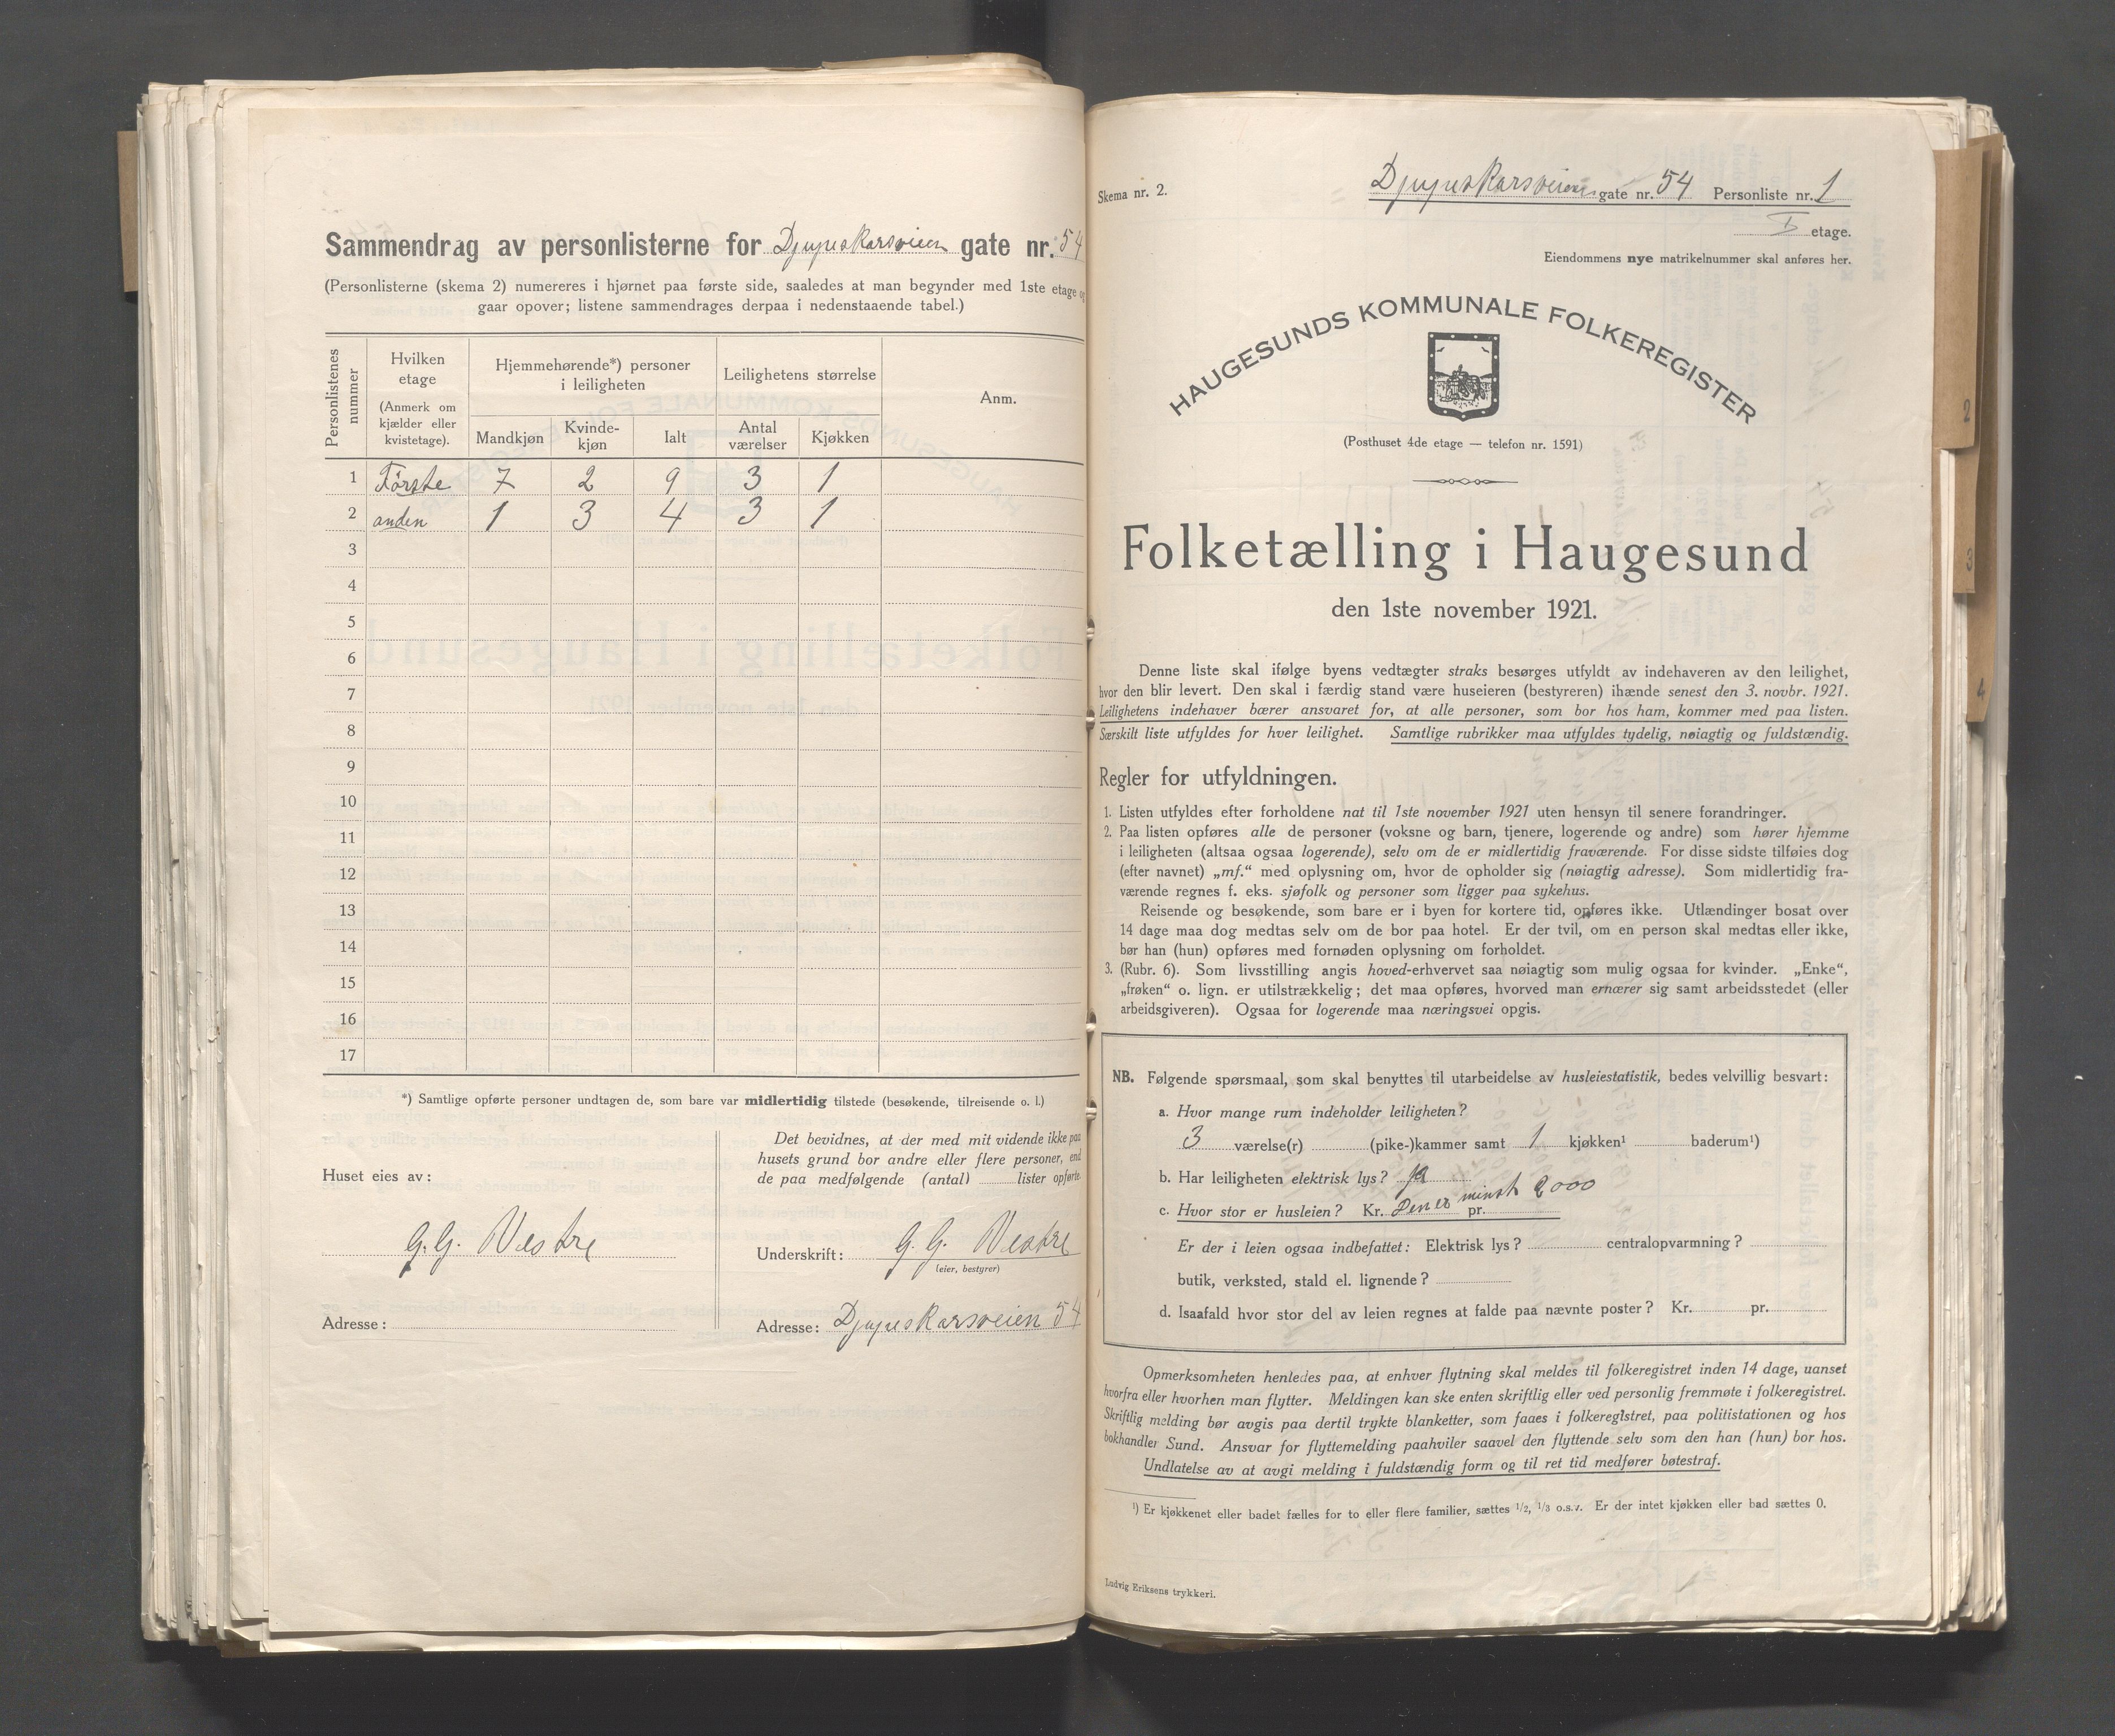 Sammendrag av personlisterne for Djupaskarsveien gate nr. 54
(Personlisterne (skema 2) numereres i hjørnet paa første side, saaledes at man begynder med 1ste etage og
gaar opover; listene sammendrages derpaa i nedenstaaende tabel.)
Personlistenes nummer
Hvilken etage
(Anmerk om kjælder eller kvistetage).
Hjemmehørende*) personer i leiligheten
Leilighetens størrelse
Anm.
Mandkjøn
Kvinde-kjøn
Ialt
Antal værelser
Kjøkken
1 Første 7 2 9 3 1
2 anden 1 3 4 3 1
3
4
5
6
7
8
9
10
11
12
13
14
15
16
17
*) Samtlige opførte personer undtagen de, som bare var midlertidig tilstede (besøkende, tilreisende o. l.)
Huset eies av:
G. G. Vestre
Adresse:
Det bevidnes, at der med mit vidende ikke paa
husets grund bor andre eller flere personer, end
de paa medfølgende (antal) lister opførte.
Underskrift: G. G. Vestre
(eier, bestyrer)
Adresse: Djupaskarsveien 54
Skema nr. 2.
Djupaskarsveien gate nr. 54 Personliste nr. 1
I etage.
Eiendommens nye matrikelnummer skal anføres her.
HAUGESUNDS KOMMUNALE FOLKEREGISTER
(Posthuset 4de etage — telefon nr. 1591)
Folketælling i Haugesund
den 1ste november 1921.
Denne liste skal ifølge byens vedtægter straks besørges utfyldt av indehaveren av den leilighet,
hvor den blir levert. Den skal i færdig stand være huseieren (bestyreren) ihænde senest den 3. novbr. 1921.
Leilighetens indehaver bærer ansvaret for, at alle personer, som bor hos ham, kommer med paa listen.
Særskilt liste utfyldes for hver leilighet. Samtlige rubrikker maa utfyldes tydelig, nøiagtig og fuldstændig.
Regler for utfyldningen.
1. Listen utfyldes efter forholdene nat til 1ste november 1921 uten hensyn til senere forandringer.
2. Paa listen opføres alle de personer (voksne og barn, tjenere, logerende og andre) som hører hjemme
i leiligheten (altsaa ogsaa logerende), selv om de er midlertidig fraværende. For disse sidste tilføies dog
(efter navnet) „mf.“ med oplysning om, hvor de opholder sig (nøiagtig adresse). Som midlertidig fra-
værende regnes f. eks. sjøfolk og personer som ligger paa sykehus.
Reisende og besøkende, som bare er i byen for kortere tid, opføres ikke. Utlændinger bosat over
14 dage maa dog medtas selv om de bor paa hotel. Er der tvil, om en person skal medtas eller ikke,
bør han (hun) opføres med fornøden oplysning om forholdet.
3. (Rubr. 6). Som livsstilling angis hoved-erhvervet saa nøiagtig som mulig ogsaa for kvinder. „Enke“,
„frøken“ o. lign. er utilstrækkelig; det maa opføres, hvorved man ernærer sig samt arbeidsstedet (eller
arbeidsgiveren). Ogsaa for logerende maa næringsvei opgis.
NB. Følgende spørsmaal, som skal benyttes til utarbeidelse av husleiestatistik, bedes velvillig besvart:
a. Hvor mange rum indeholder leiligheten?
3 værelse(r) (pike-)kammer samt 1 kjøkken¹ baderum¹)
b. Har leiligheten elektrisk lys? ja
c. Hvor stor er husleien? Kr. Den er minst 2000 pr.
Er der i leien ogsaa indbefattet: Elektrisk lys? centralopvarmning?
butik, verksted, stald el. lignende?
d. Isaafald hvor stor del av leien regnes at falde paa nævnte poster? Kr. pr.
Opmerksomheten henledes paa, at enhver flytning skal meldes til folkeregistret inden 14 dage, uanset
hvorfra eller hvorhen man flytter. Meldingen kan ske enten skriftlig eller ved personlig fremmøte i folkeregistret.
Skriftlig melding bør avgis paa dertil trykte blanketter, som faaes i folkeregistret, paa politistationen og hos
bokhandler Sund. Ansvar for flyttemelding paahviler saavel den flyttende selv som den han (hun) bor hos.
Undlatelse av at avgi melding i fuldstændig form og til ret tid medfører bøtestraf.
¹) Er kjøkkenet eller badet fælles for to eller flere familier, sættes 1/2, 1/3 o.s.v. Er der intet kjøkken eller bad sættes 0.
Ludvig Eriksens trykkeri.
2
3
4